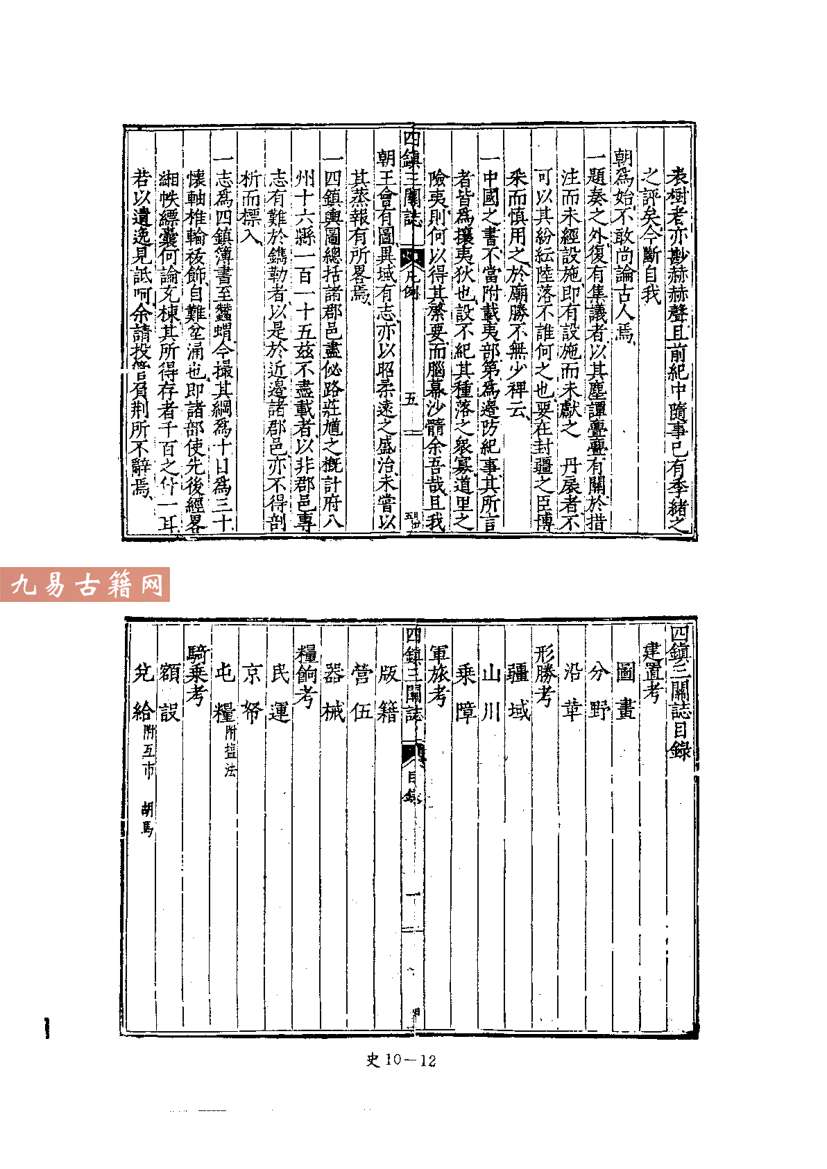 表樹者亦尠赫赫聲且前紀中隨事已有季緒之
之評矣今斷自我
朝爲始不敢尚論古人焉
一題奏之外復有集議者以其麈譚亹亹有關於措
注而未經設施即有設施而未獻之 丹扆者不
可以其紛紜陸落不誰何之也要在封疆之臣博
釆而慎用之於廟勝不無少裨云
一中國之書不當附載夷部第爲邊防紀事其所言
者皆爲攘夷狄也設不紀其種落之衆寡道里之
險夷則何以得其綮要而腦幕沙髓余吾哉且我
四鎮三關誌 凡例 五
朝王會有圖異域有志亦以昭柔遠之盛治未嘗以
其蒸報有所畧焉
一四鎮輿圖總括諸郡邑盡佖路莊馗之概計府八
州十六縣一百一十五茲不盡載者以非郡邑專
志有難於鐫勒者以是於近邊諸郡邑亦不得剖
析而標入
一志爲四鎮簿書至蠶蝟今撮其綱爲十目爲三十
懷軸椎輪核飾自難坌涌也即諸部使先後經畧
緗帙縹囊何論充棟其所得存者千百之什一耳
若以遺逸見詆呵余請投管負荆所不辭焉
九易古籍网
四鎮三關誌目錄
建置考
圖畫
分野
沿革
形勝考
疆域
山川
乘障
軍旅考
四鎮三關誌 目錄 一
版籍
營伍
器械
糧餉考
民運
京帑
屯糧 附塩法
騎乘考
額設
兌給 附互市 胡馬
史10—12